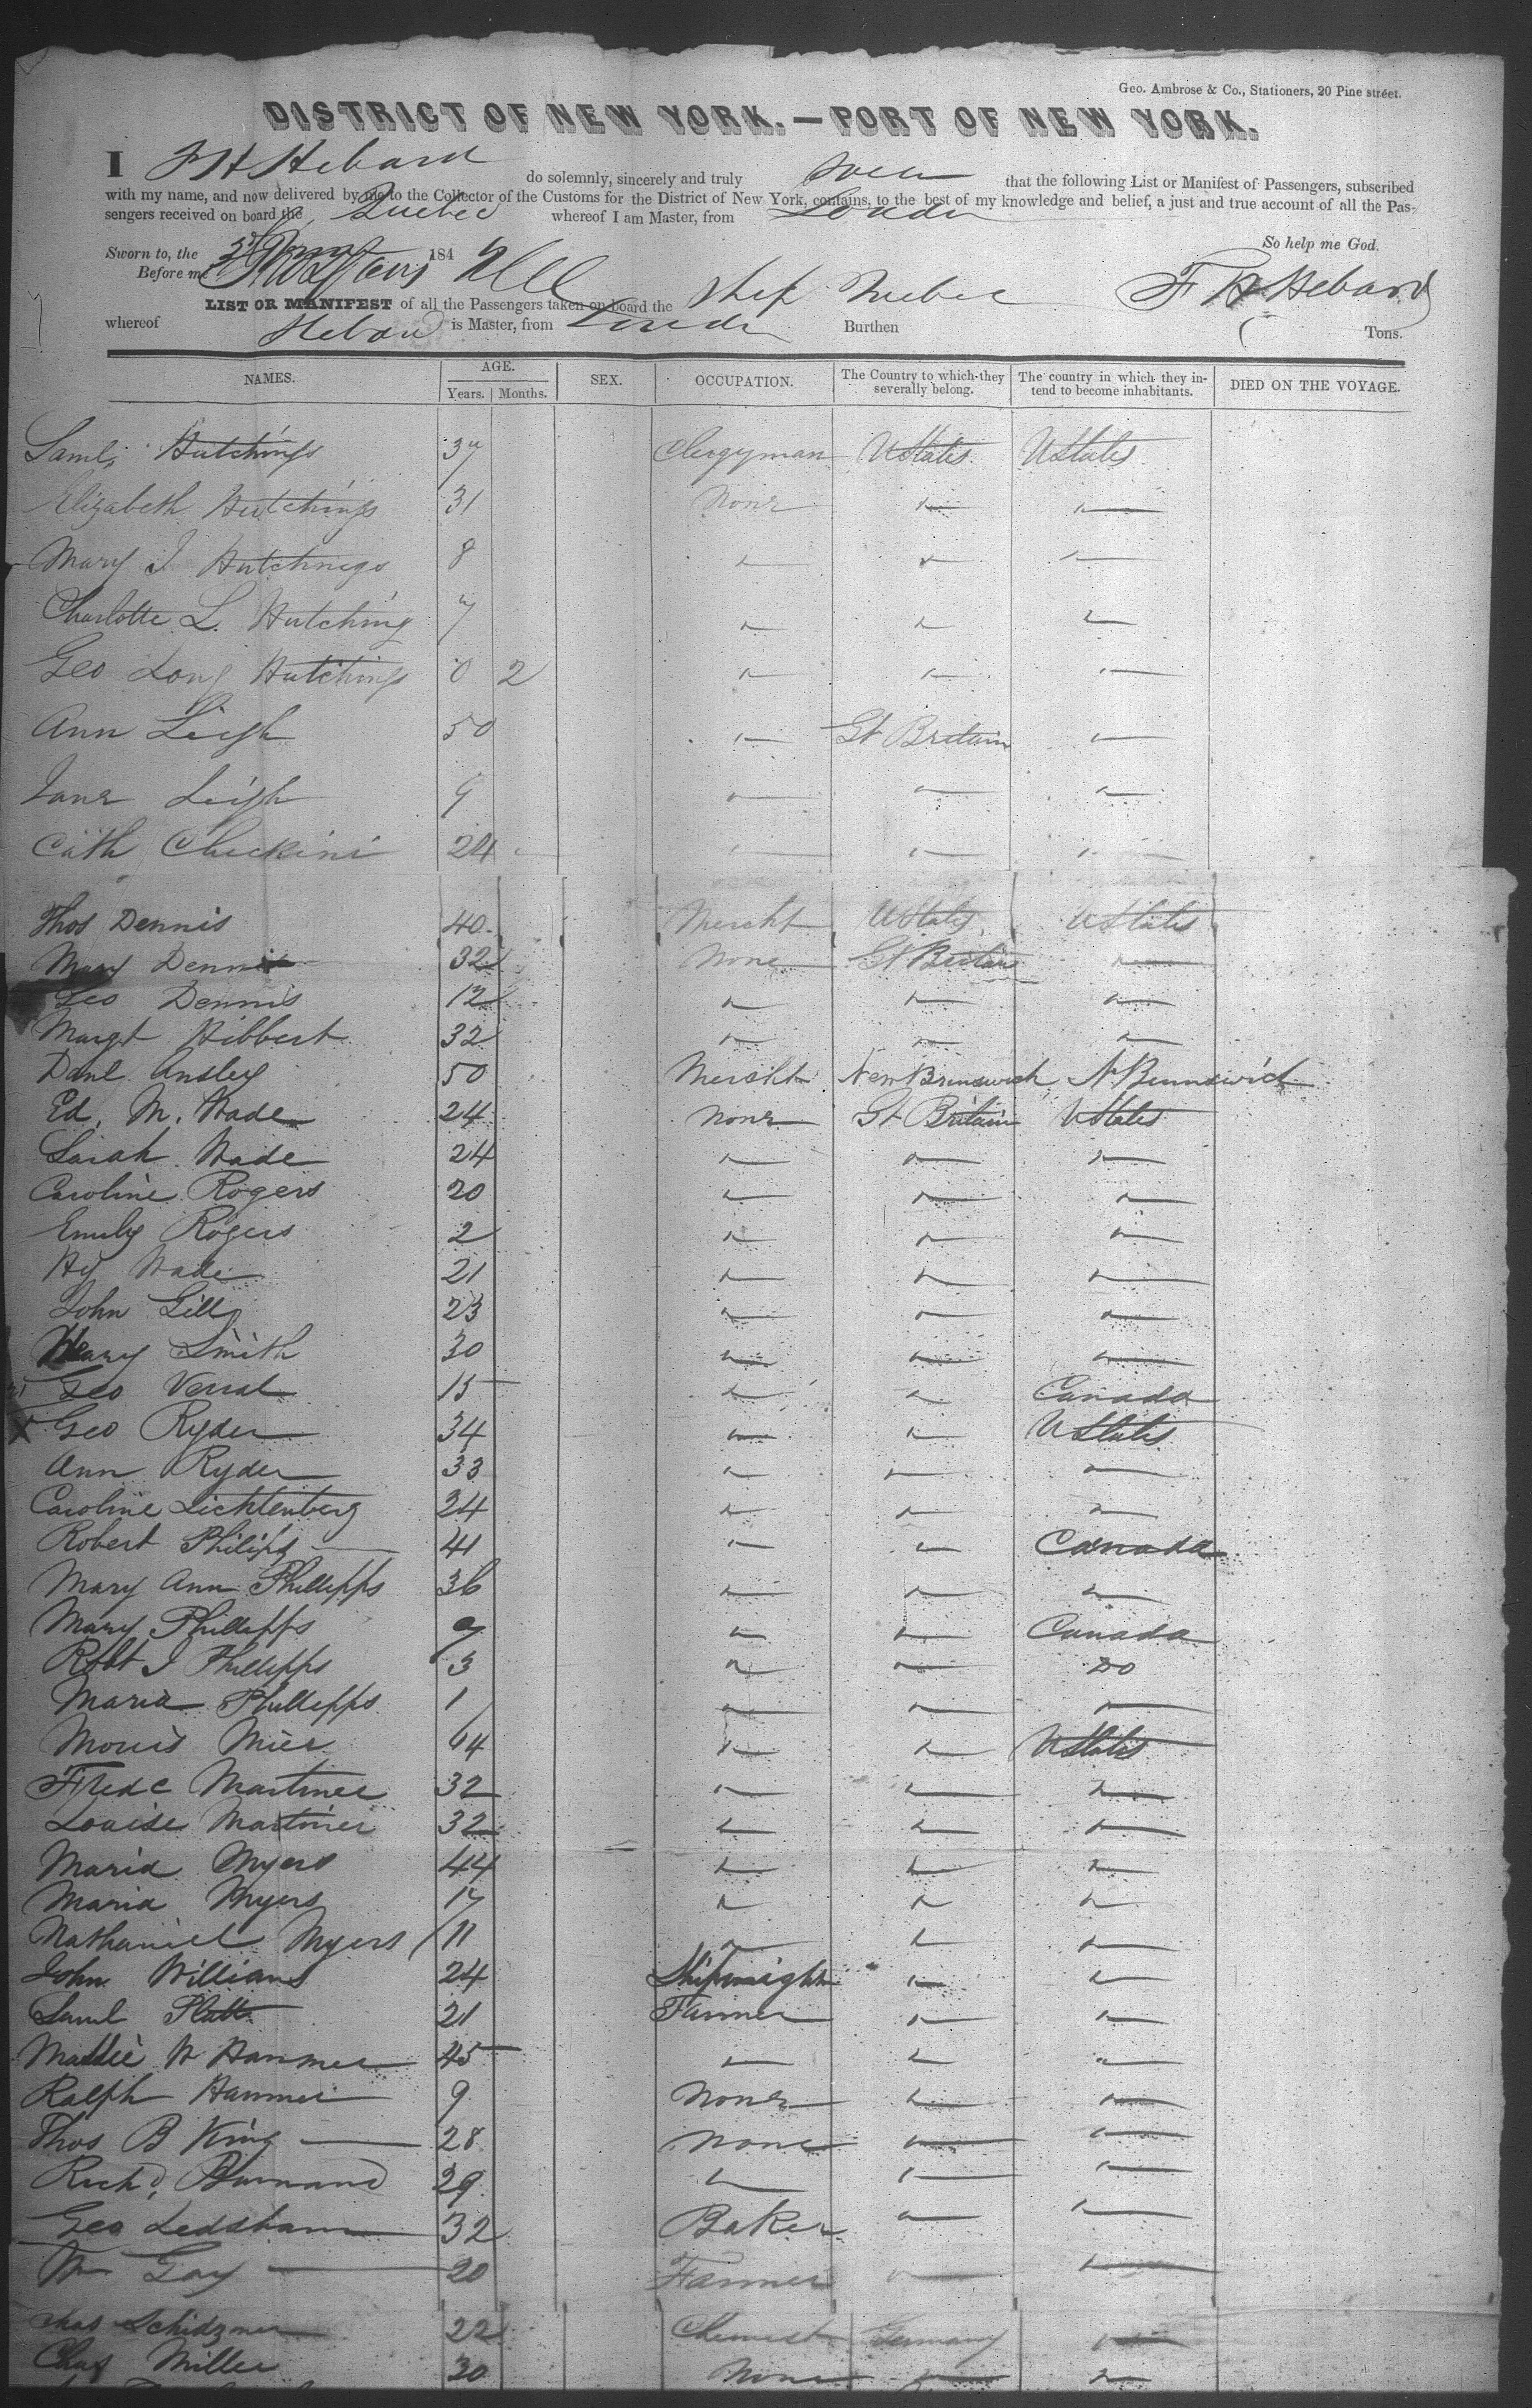 Geo. Ambrose & Co., Stationers, 20 Pine street.
DISTRICT OF NEW YORK.—PORT OF NEW YORK.
I F H Hebard do solemnly, sincerely and truly that the following List or Manifest of Passengers, subscribed
with my name, and now delivered by me to the Collector of the Customs for the District of New York, contains, to the best of my knowledge and belief, a just and true account of all the Pas-
sengers received on board the Quebec whereof I am Master, from London
So help me God.
Sworn to, the 184
Before me F H Hebard
LIST OR MANIFEST of all the Passengers taken on board the Ship Quebec
whereof Hebard is Master, from London Burthen Tons.
NAMES. AGE. Years. Months. SEX. OCCUPATION. The Country to which they severally belong. The country in which they intend to become inhabitants. DIED ON THE VOYAGE.
Saml. Hutchings 37 Clergyman UStates UStates
Elizabeth Hutchings 31 None
Mary J Hutchings 8
Charlotte L. Hutching 7
Geo Long Hutchings 0 2
Ann Leigh 50 Gt Britain
Jane Leigh 9
Cath Checkini 24
Thos Dennis 40 Mercht UStates UStates
Mary Dennis 32 None Gt Britain
Geo Dennis 12
Margt Hibbert 32
Danl Ansley 50 Mercht New Brunswick N Brunswick
Ed. M. Wade 24 None Gt Britain UStates
Sarah Wade 24
Caroline Rogers 20
Emily Rogers 2
Hy Wade 21
John Gill 23
Mary Smith 30
Geo Verral 15 Canada
Geo Ryder 34 UStates
Ann Ryder 33
Caroline Lichtenberg 24
Robert Philips 41 Canada
Mary Ann Phillipps 36
Mary Phillipps 9 Canada
Robt J Phillipps 3 Do
Maria Phillipps 1
Morris Mier 64 UStates
Fredc Martiner 32
Louise Martiner 32
Maria Myers 44
Maria Myers 17
Nathaniel Myers 11
John Williams 24 Shipwright
Saml Platt 21 Farmer
W Hanmer 45
Ralph Hanmer 9 None
Thos B King 28 None
Richd. Burnand 29
Geo Ledsham 32 Baker
Wm Gay 20 Farmer
Chas Schidzmer 22 Chemist Germany
Chas Miller 30 None